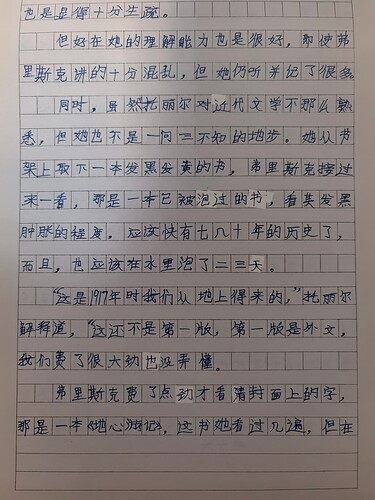 也是显得十分生疏。
但好在她的理解能力也是很好，即使弗
里斯克讲的十分混乱，但她仍听并记了很多。
同时，虽然托丽尔对近代文学不那么熟
悉，但她也不是一问三不知的地步。她从书
架上取下一本发黑发黄的书，弗里斯克接过
来一看，那是一本已被泡过的书，看其发黑
肿胀的程度，应该快有七八十年的历史了，
而且，也应该在水里泡了二三天。
“这是1917年时我们从地上得来的，”托丽尔
解释道，“这还不是第一版，第一版是外文，
我们费了很大劲也没弄懂。
弗里斯克费了点劲才看清封面上的字，
那是一本《地心游记》，这书她看过几遍，但在